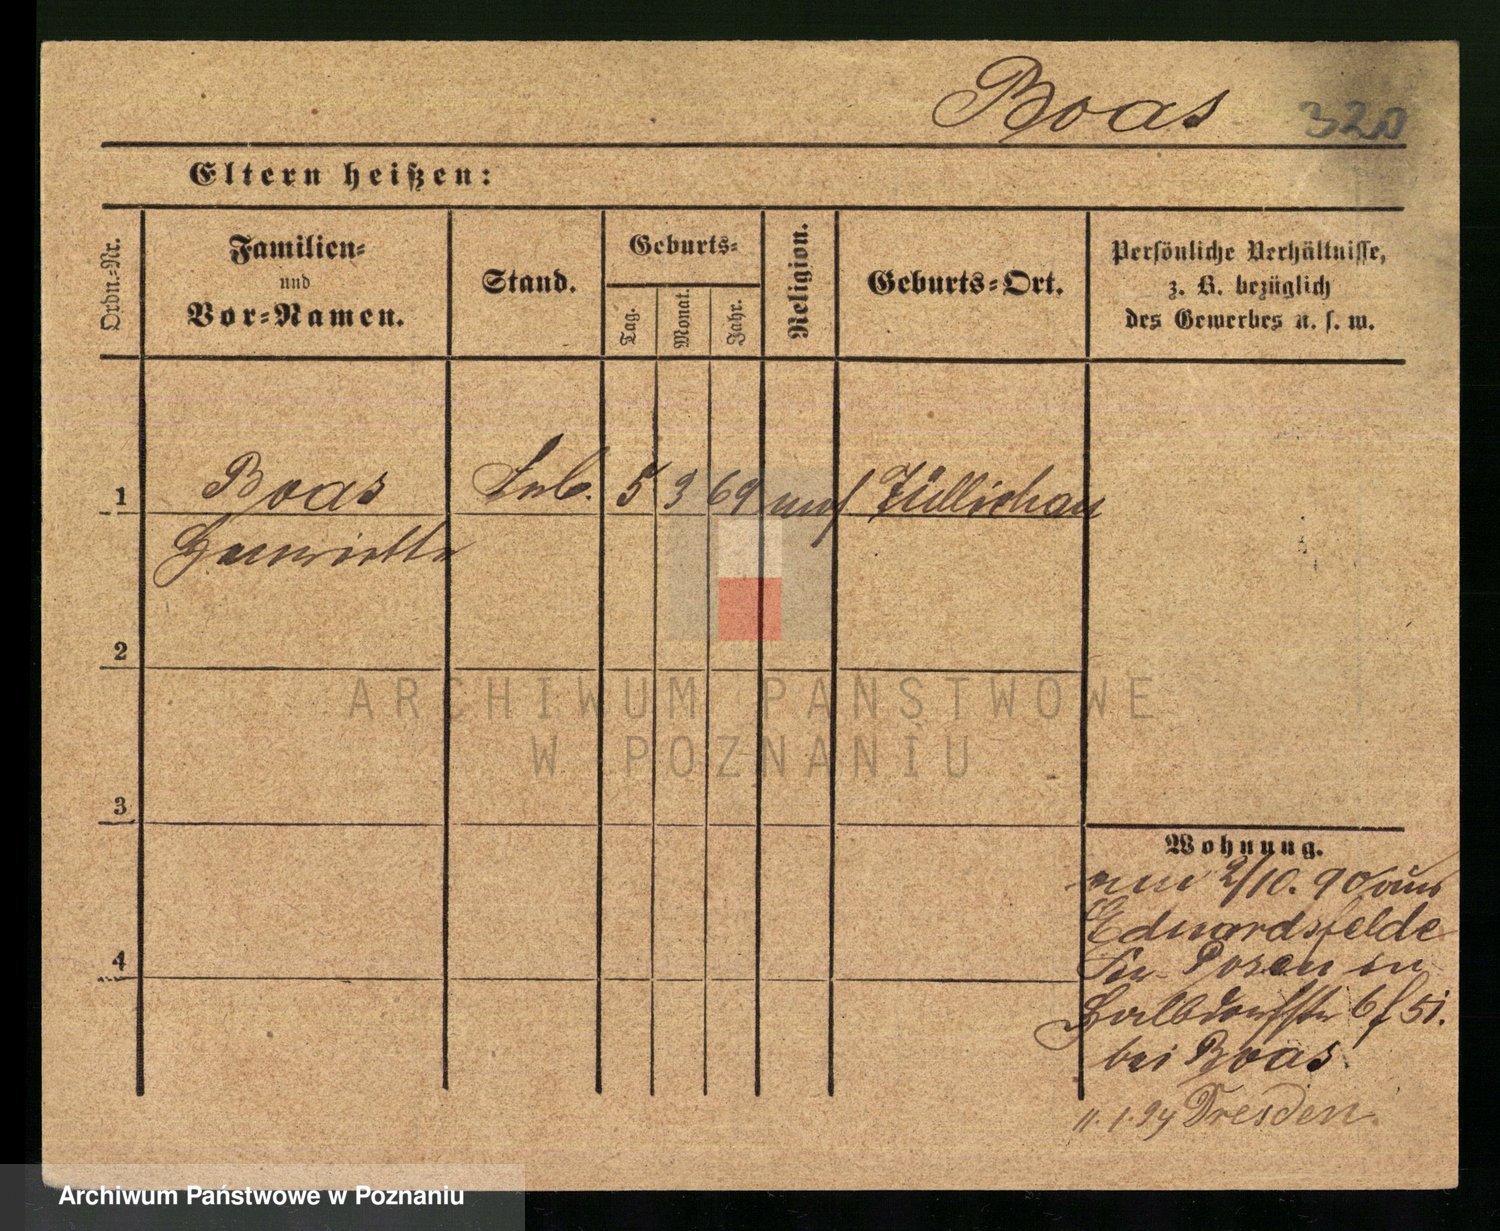 Boas 320
Eltern heißen:
Ordn.-Nr.
Familien-
und
Vor-Namen.
Stand.
Geburts-
Tag.
Monat.
Jahr.
Religion.
Geburts-Ort.
Persönliche Verhältnisse,
z. B. bezüglich
des Gewerbes u. s. w.
1 Boas 5 3 69 Züllichau
Henriette
2
ARCHIWUM PAŃSTWOWE
W POZNANIU
3
Wohnung.
2/10. 90 aus
Eduardsfelde
Posen
Halbdorfstr 6
bei Boas
4
11. 1. 94 Dresden.
Archiwum Państwowe w Poznaniu